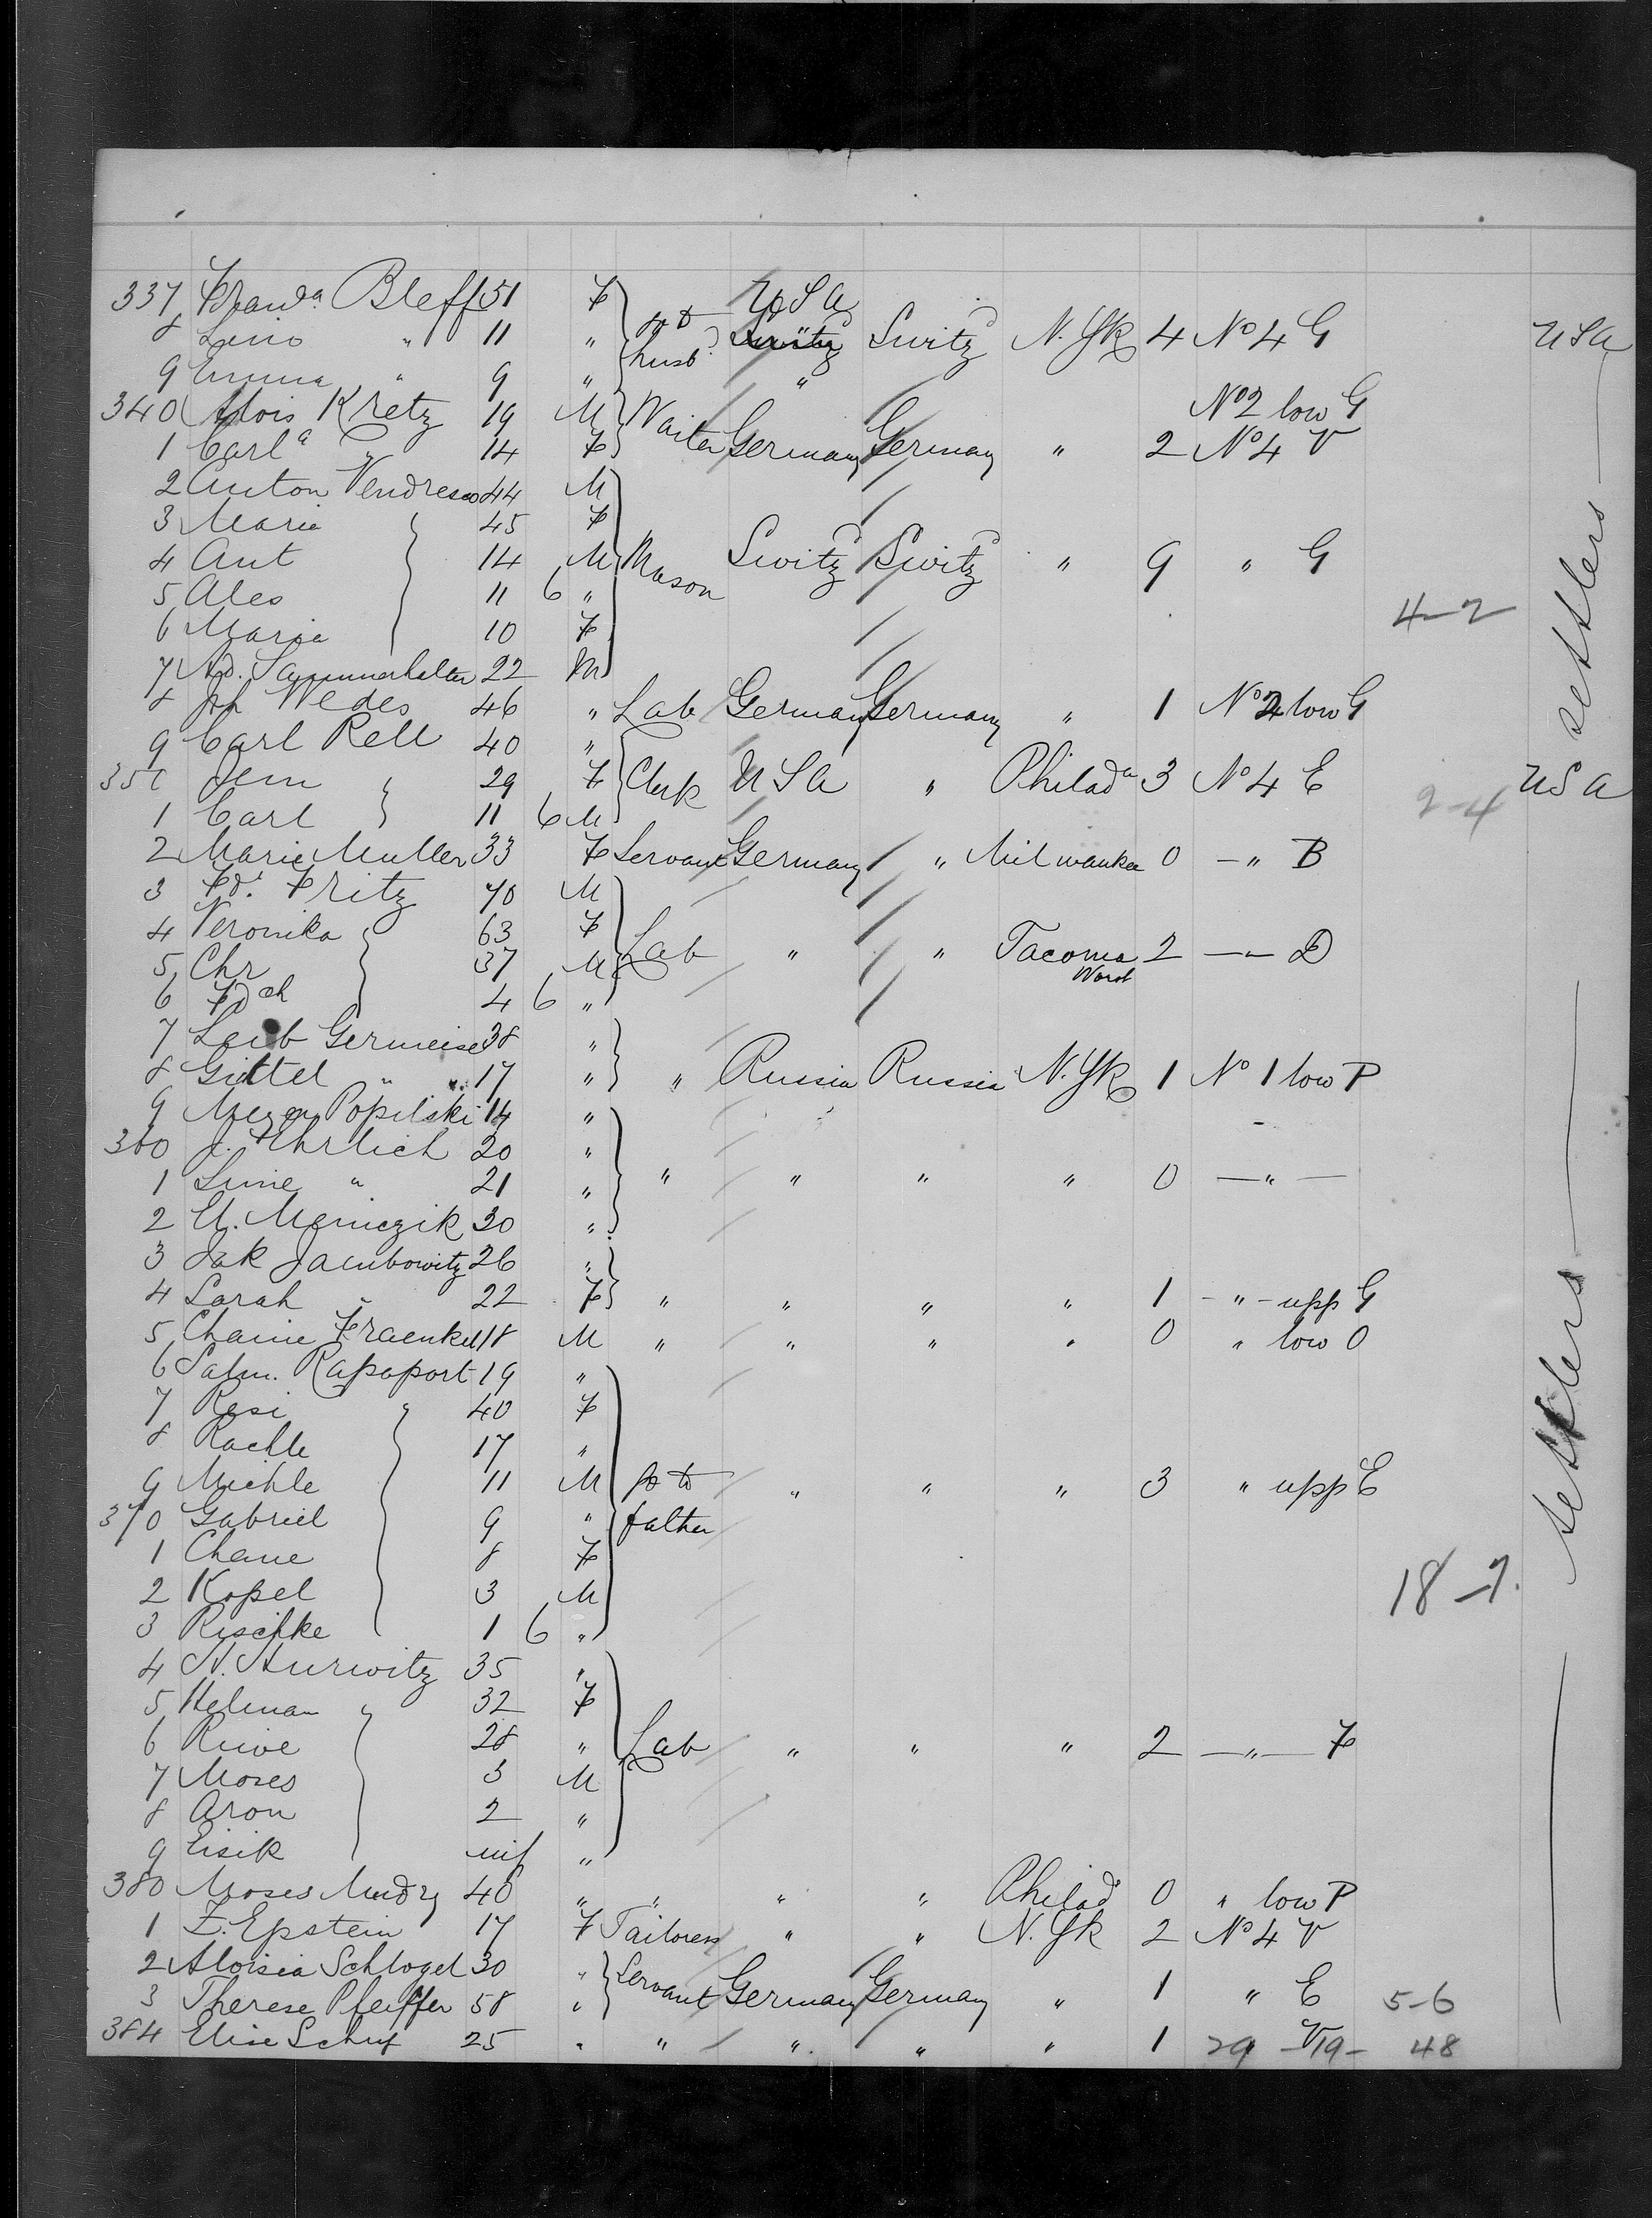 337 Frand.a Bleff 51 F U S A
8 Lino " 11 " g to Switz Switzd N. Yk 4 No 4 G U S A
9 Emma " 9 " husb. "
340 Alois Kretz 19 M Waiter No 2 low G
1 Carl a " 14 F Germany Germany " 2 No 4 V
2 Anton 44 M
3 Marie 45 F
4 Ant 14 M Mason Switzd Switzd " 9 " G
5 Ales 11 6 "
6 Maria 10 F 4-2
7 Ad. 22 M
8 Jph Wedes 46 " Lab Germany Germany " 1 No 2 low G
9 Carl Rell 40 "
350 Jenn " 29 F Clerk U S A " Philada 3 No 4 E 2-4 U S A
1 Carl 11 6 M
2 Marie Muller 33 F Servant Germany " Milwaukee 0 — " B
3 Fd. Fritz 70 M
4 Veronika 63 F
5 Chr 37 M Lab " " Tacoma 2 — " — D
6 Fdch 4 6 " Wash
7 Leib Germeise 38 "
8 Gittel " " 17 " " Russia Russia N. Yk 1 No 1 low P
9 Popilski 14 "
360 J. Ehrlich 20 "
1 Sime " 21 " " " " " 0 — " —
2 30 "
3 Jak Jacubowitz 26 "
4 Sarah " 22 F " " " " 1 - " - upp G
5 Chaine Fraenkel 18 M " " " " 0 " low O
6 Salm. Rapoport 19 "
7 Resi " 40 F
8 Rachle 17 "
9 Michle 11 M g to " " " 3 " upp E
370 Gabriel 9 " father
1 Chane 8 F
2 Kopel 3 M 18-7.
3 Rischke 1 6 "
4 N. Hurwitz 35 "
5 Helman " 32 F
6 Riwe 28 " Lab " " " 2 — " — F
7 Moses 3 M
8 Aron 2 "
9 Eisik inf "
380 Moses Mudry 40 " " " " Philada 0 " low P
1 Z. Epstein 17 F Tailoress " " N. Yk 2 No 4 V
2 Aloisia Schlogel 30 "
3 Therese Pfeiffer 58 " Servant Germany Germany " 1 " E 5-6
384 Elise 25 " " " " " 1 29 - V19 - 48
settlers
settlers